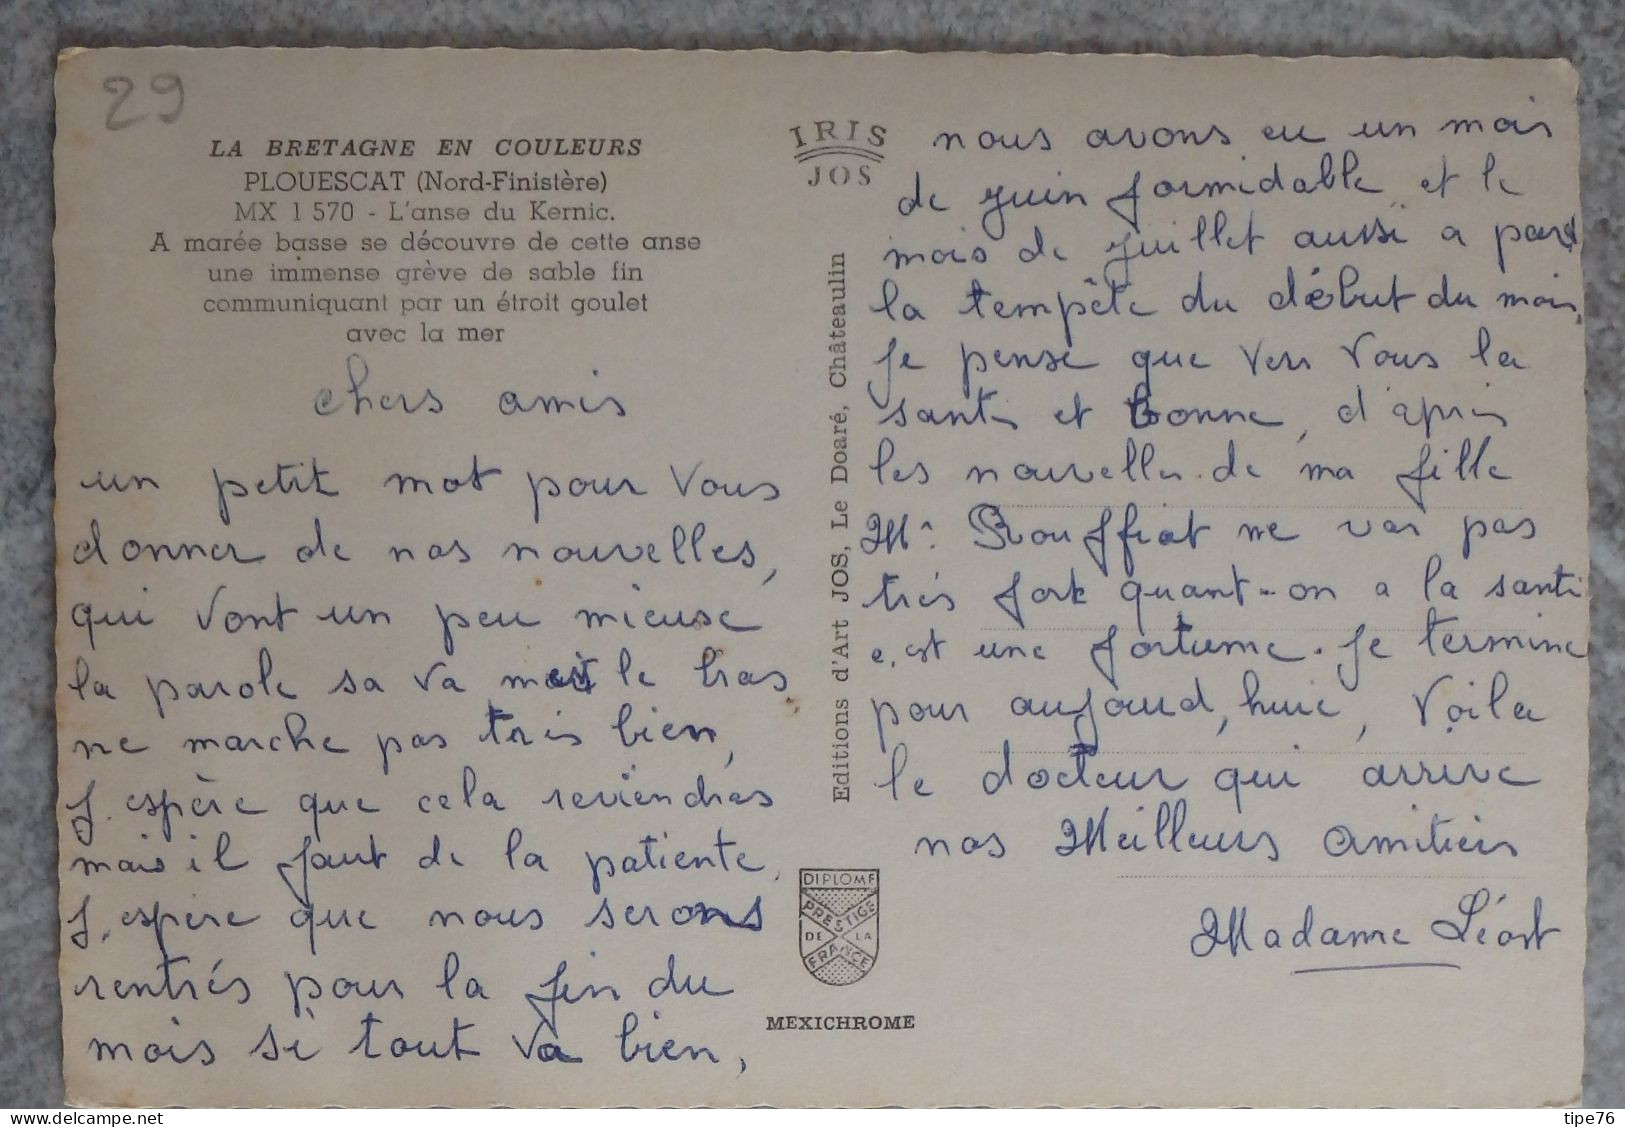 29
LA BRETAGNE EN COULEURS
PLOUESCAT (Nord-Finistère)
MX 1 570 - L'anse du Kernic.
A marée basse se découvre de cette anse
une immense grève de sable fin
communiquant par un étroit goulet
avec la mer
chers amis
un petit mot pour vous
donner de nos nouvelles,
qui vont un peu mieuse
la parole sa va mais le bras
ne marche pas très bien,
J'espère que cela reviendras
mais il faut de la patiente,
J'espère que nous serons
rentrés pour la fin du
mois si tout va bien,
IRIS
JOS
Editions d'Art JOS, Le Doaré, Châteaulin
DIPLOME
PRESTIGE
DE LA
FRANCE
MEXICHROME
nous avons eu un mois
de juin formidable et le
mois de juillet aussi a part
la tempête du début du mois,
Je pense que vers vous la
santé et bonne, d'après
les nouvelles de ma fille
Mr Rouffiat ne vas pas
très fort quant-on a la santé
c'est une fortune. Je termine
pour aujourd,huie, Voila
le docteur qui arrive
nos Meilleurs Amitiés
Madame Léost
tipe76